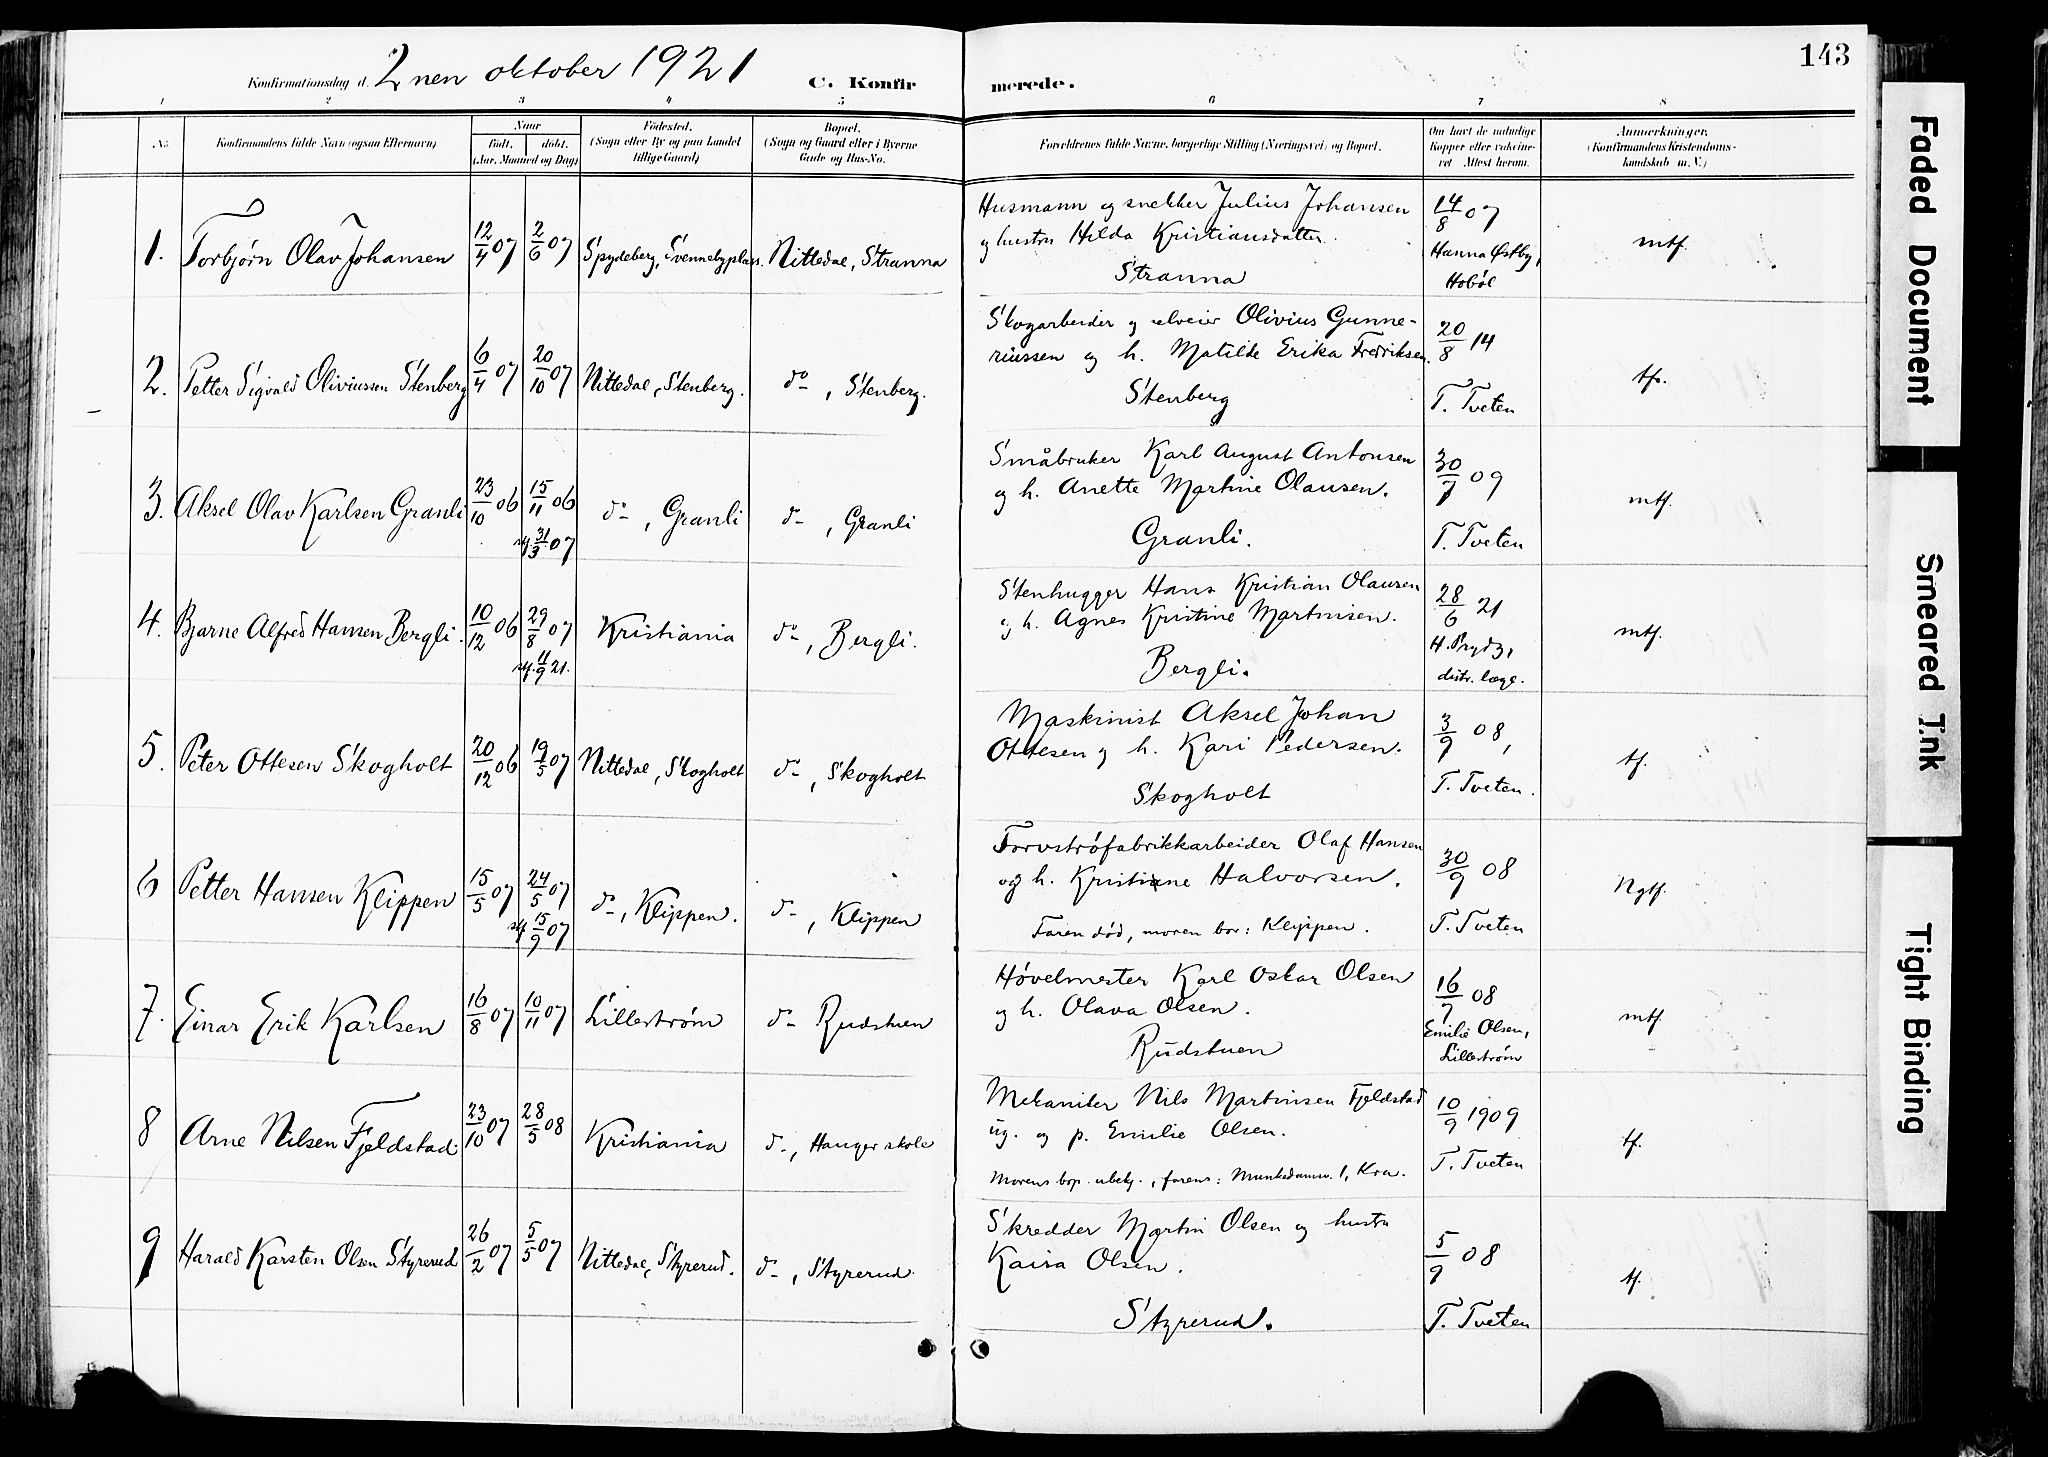 143
Konfirmationsdag d. 2nen oktober 1921
C. Konfirmerede.
1 2 3 4 5 6 7 8
No. Konfirmandens fulde Navn (ogsaa Efternavn) Naar født. døbt. (Aar, Maaned og Dag) Fødested. (Sogn eller By og paa Landet tillige Gaard) Bopæl. (Sogn og Gaard eller i Byerne Gade og Hus-No. Forældrenes fulde Navne, borgerlige Stilling (Næringsvei) og Bopæl. Om havt de naturlige Kopper eller vaccineret Attest herom. Anmerkninger, (Konfirmandens Kristendomskundskab m. V.)
1. Torbjørn Olav Johansen 12/4 07 2/6 07 Spydeberg, Svennebyplads. Nittedal, Stranna
Husmann og snekker Julius Johansen
og hustru Hilda Kristiansdatter.
Stranna
14/8 07
Hanna Østby,
Hobøl
mtf.
2. Petter Sigvald Oliviussen Stenberg 6/4 07 20/10 07 Nittedal, Stenberg. do , Stenberg.
Skogarbeider og selveier Olivius Gunne-
riussen og h. Matilde Erika Fredriksen.
Stenberg
20/8 14
T. Tveten
3. Aksel Olav Karlsen Granli 23/10 06 15/11 06
31/3 07
do , Granli do , Granli
Småbruker Karl August Antonsen
og h. Anette Martine Olausen.
Granli.
30/7 09
T. Tveten
mtf.
4. Bjarne Alfred Hansen Bergli. 10/12 06 29/8 07
11/9 21.
Kristiania do , Bergli.
Stenhugger Hans Kristian Olausen
og h. Agnes Kristine Martinsen.
Bergli.
28/6 21
H. Prydz,
distr. læge.
mtf.
5. Peter Ottesen Skogholt 20/12 06 19/5 07 Nittedal, Skogholt do , Skogholt
Maskinist Aksel Johan
Ottesen og h. Kari Pedersen.
Skogholt
3/9 08,
T. Tveten.
tf.
6 Petter Hansen Klippen 15/5 07 24/5 07
15/9 07
do , Klippen. do , Klippen
Torvstrøfabrikkarbeider Olaf Hansen
og h. Kristine Halvorsen.
Faren død, moren bor: Klippen.
30/9 08
T. Tveten
Ngtf.
7. Einar Erik Karlsen 16/8 07 10/11 07 Lillestrøm do Rudstuen
Høvelmester Karl Oskar Olsen
og h. Olava Olsen.
Rudstuen
16/7 08
Emilie Olsen,
Lillestrøm
mtf.
8 Arne Nilsen Fjeldstad. 23/10 07 28/5 08 Kristiania do , Hauger skole
Mekaniker Nils Martinsen Fjeldstad
ug. og p. Emilie Olsen.
Morens bop. ubekj., farens: Munkedamsv. 1, Kra.
10/9 1909
T. Tveten
tf.
9 Harald Karsten Olsen Styrerud 26/2 07 5/5 07 Nittedal, Styrerud. do , Styrerud
Skredder Martin Olsen og hustru
Kaisa Olsen.
Styrerud.
5/9 08
T. Tveten
tf.
Faded Document
Smeared Ink
Tight Binding